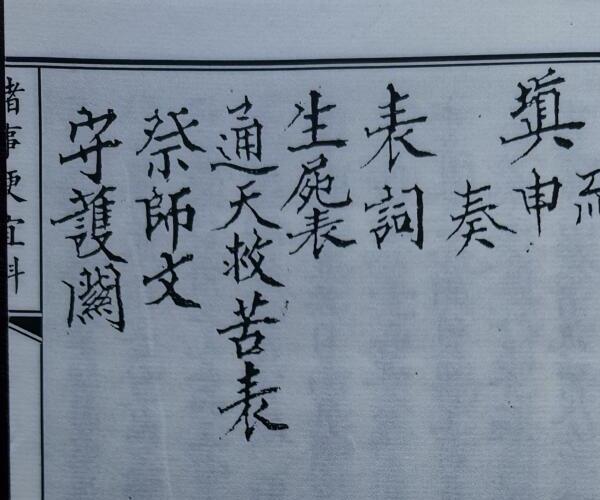 填申
奏
表詞
生屍表
通天救苦表
祭師文
守護關
諸事便宜科